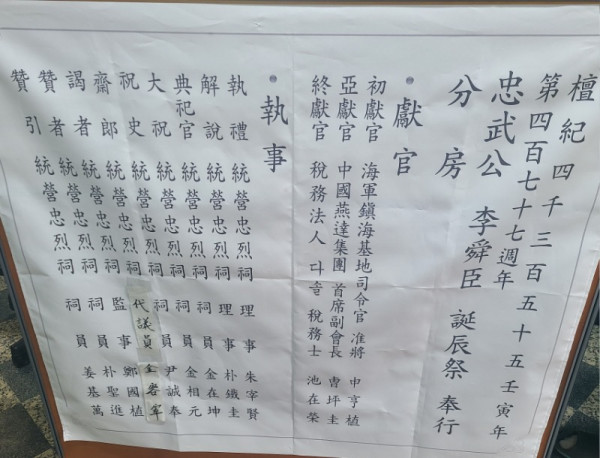 檀紀四千三百五十五壬寅年
第四百七十七週年
忠武公 李舜臣 誕辰祭 奉行
分房
◉ 獻官
初獻官 海軍鎭海基地司令官 准將 申亨植
亞獻官 中國燕達集團 首席副會長 曺坪圭
終獻官 稅務法人 다솔 稅務士 池在榮
◉ 執事
執禮 統營忠烈祠 理事 朱字賢
解說 統營忠烈祠 理事 朴殲圭
典祀官 統營忠烈祠 祠員 金在坤
大祝 統營忠烈祠 祠員 金相元
祝史 統營忠烈祠 祠員 尹誠奉
齋郎 統營忠烈祠 代議員 金
謁者 統營忠烈祠 監事 鄭國植
贊者 統營忠烈祠 祠員 朴聖進
贊引 統營忠烈祠 祠員 姜基萬